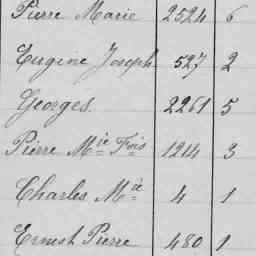 Pierre Marie 2524 6
Eugène Joseph 527 2
Georges. 2261 5
Pierre Mie Fois 1214 3
Charles Mie 4 1
Ernest Pierre 480 1